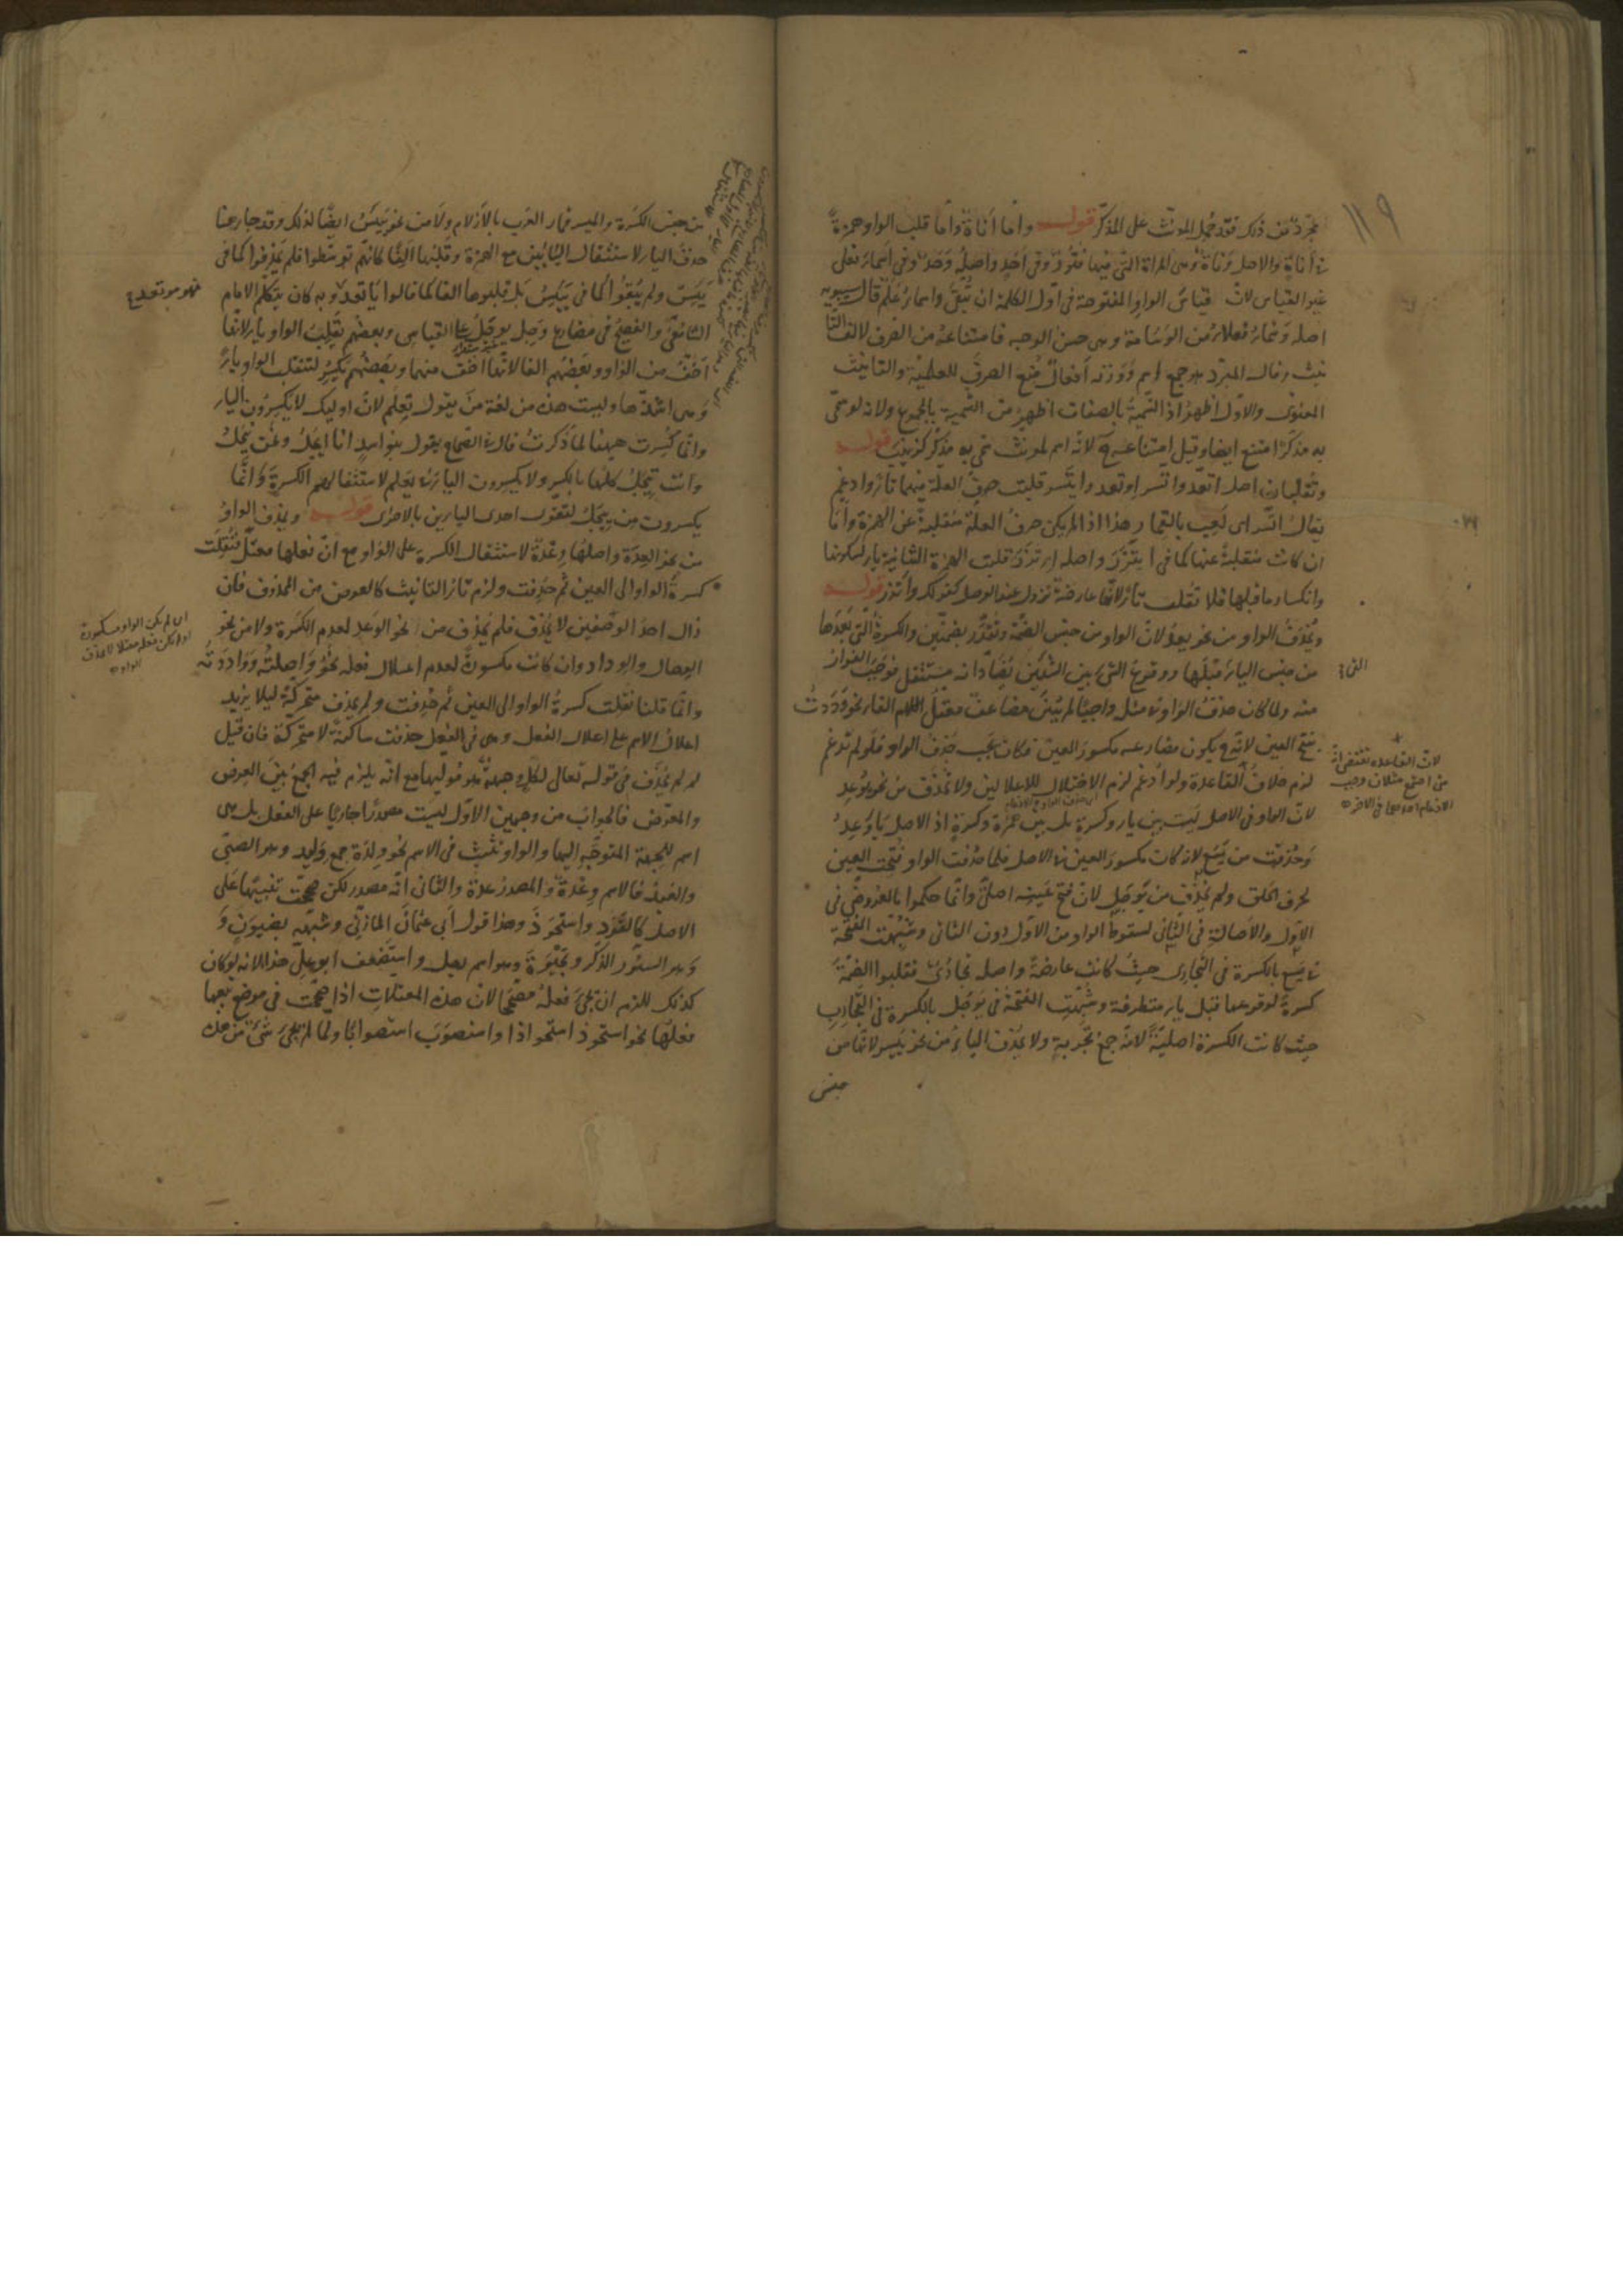 ١١٩
مجرد من ذلك فقد حُمِل المؤنث على المذكر قوله وأما أناة وأما قلب الواو همزة
في أناة والأصل وناة وهي المرأة التي فيها فتور وفي أحد وأصله وحد وفي أسماء فعلى
غير القياس لأن قياس الواو المفتوحة في أول الكلمة أن تبقى وأسماء علم قال سيبويه
أصله وسماء فعلاء من الوسامة وهي حسن الوجه فامتناعه من الصرف لألف التأ
نيث وقال المبرد هو جمع اسم ووزنه أفعال منع الصرف للعلمية والتأنيث
المعنوي والأول أظهر إذ التسمية بالصفات أظهر من التسمية بالجموع ولأنه لو سمي
به مذكرا امتنع أيضا وقيل امتناعه لأنه اسم لمؤنث سمي به مذكر كزينب قوله
وتقلبان أصل اتعد واتسر اوتعد وايتسر قلبت حرف العلة فيهما تاء وادغم
يقال اتسر أي لعب بالقمار وهذا إذا لم يكن حرف العلة منقلبة عن الهمزة وأما
إن كانت منقلبة عنها كما في ايتزر وأصله اءتزر قلبت الهمزة الثانية ياء لسكونها
وانكسار ما قبلها فلا تقلب تاء لأنها عارضة تزول عند الوصل كقولك واتزر قوله
وتحذف الواو من نحو يعد لأن الواو من جنس الضمة وتقدر بضمتين والكسرة التي بعدها
من جنس الياء قبلها ووقوع الشيء بين الشيئين يضادانه مستثقل فوجب الفرار
منه ولما كان حذف الواو في مثله واجبا لم يبن مضاعف معتل الفاء نحو وددت
بفتح العين لأنه ح يكون مضارعه مكسور العين فكان يجب حذف الواو فلو لم تدغم
لزم خلاف القاعدة ولو ادغم لزم الاختلال للإعلالين ولا تحذف من نحو يوعد
لأن الواو في الأصل ليست بين ياء وكسرة بل بين همزة وكسرة إذ الأصل يأوعد
وحذفت من يسع لأنه كان مكسور العين في الأصل فلما حذفت الواو فتحت العين
لحرف الحلق ولم تحذف من يوجل لأن فتح عينه أصلي وإنما حكموا بالعروض في
الأول والأصالة في الثاني لسقوط الواو من الأول دون الثاني وشبهت الفتحة
في يسع بالكسرة في التجاري حيث كانت عارضة وأصله تجاري فقلبوا الضمة
كسرة لوقوعها قبل ياء متطرفة وشبهت الفتحة في يوجل بالكسرة في التجارب
حيث كانت الكسرة أصلية لأنه جمع تجربة ولا تحذف الياء من نحو ييسر لأنها من
جنس
لأن القاعدة تقتضي أنه
متى اجتمع مثلان وجب
الادغام
من جنس الكسرة والميسر قمار العرب بالأزلام ولا من نحو ييئس أيضا لذلك وقد جاء هنا
حذف الياء لاستثقال اليائين مع الهمزة وقلبها ألفا كأنهم توسطوا فلم يحذفوا كما في
يئس ولم يبقوا كما في ييئس بل قلبوها ألفا كما قالوا ياتعد وبه كان يتكلم الإمام
الشافعي والفصيح في مضارع وجل يوجل على القياس وبعضهم يقلب الواو ياء لأنها
أخف من الواو وبعضهم ألفا لأنها أخف منهما وبعضهم يكسر لتنقلب الواو ياء
وهي أشذها وليست هذه من لغة من يقول تعلم لأن أوليك لا يكسرون الياء
وإنما كسرت ههنا لما ذكرت قال في الصحاح يقول بنو أسد أنا ايجل ونحن نيجل
وأنت تيجل كلها بالكسر ولا يكسرون الياء في يعلم لاستثقالهم الكسرة وإنما
يكسرون من ييجل لتقوى إحدى الياءين بالأخرى قوله وتحذف الواو
من نحو العدة وأصلها وعدة لاستثقال الكسرة على الواو مع أن فعلها معتل فنقلت
كسرة الواو إلى العين ثم حذفت ولزم تاء التأنيث كالعوض من المحذوف فإن
زال أحد الوصفين لا تحذف فلم تحذف من نحو الوعد لعدم الكسرة ولا من نحو
الوصال والوداد وإن كانت مكسورة لعدم اعتلال فعله نحو واصلته ووادته
وإنما قلنا نقلت كسرة الواو إلى العين ثم حذفت ولم تحذف متحركة ليلا يزيد
اعلال الاسم على اعلال الفعل وهي في الفعل حذفت ساكنة لا متحركة فإن قيل
لم لم تحذف في قوله تعالى لكل وجهة هو موليها مع أنه يلزم فيه الجمع بين العوض
والمعوض فالجواب من وجهين الأول ليست مصدرا جاريا على الفعل بل هي
اسم للجهة المتوجه إليها والواو تثبت في الاسم نحو ولدة جمع وليد وهو الصبي
والعبد فالاسم وعدة والمصدر عدة والثاني أنه مصدر لكن صححت تنبيها على
الأصل كالقود واستحوذ وهذا قول أبي عثمان المازني وشبهه بضيون و
وهو السنور الذكر وبحيوة وهو اسم رجل واستضعف أبو علي هذا لأنه لو كان
كذلك للزم أن يجيء فعله مصححا لأن هذه المعتلات إذا صححت في موضع تبعها
فعلها نحو استحوذ استحواذا واستصوب استصوابا ولما لم يجئ شيء من هذه
فهو موتعد
أي لم تكن الواو مكسورة
أو لم يكن فعله معتلا لا تحذف
الواو